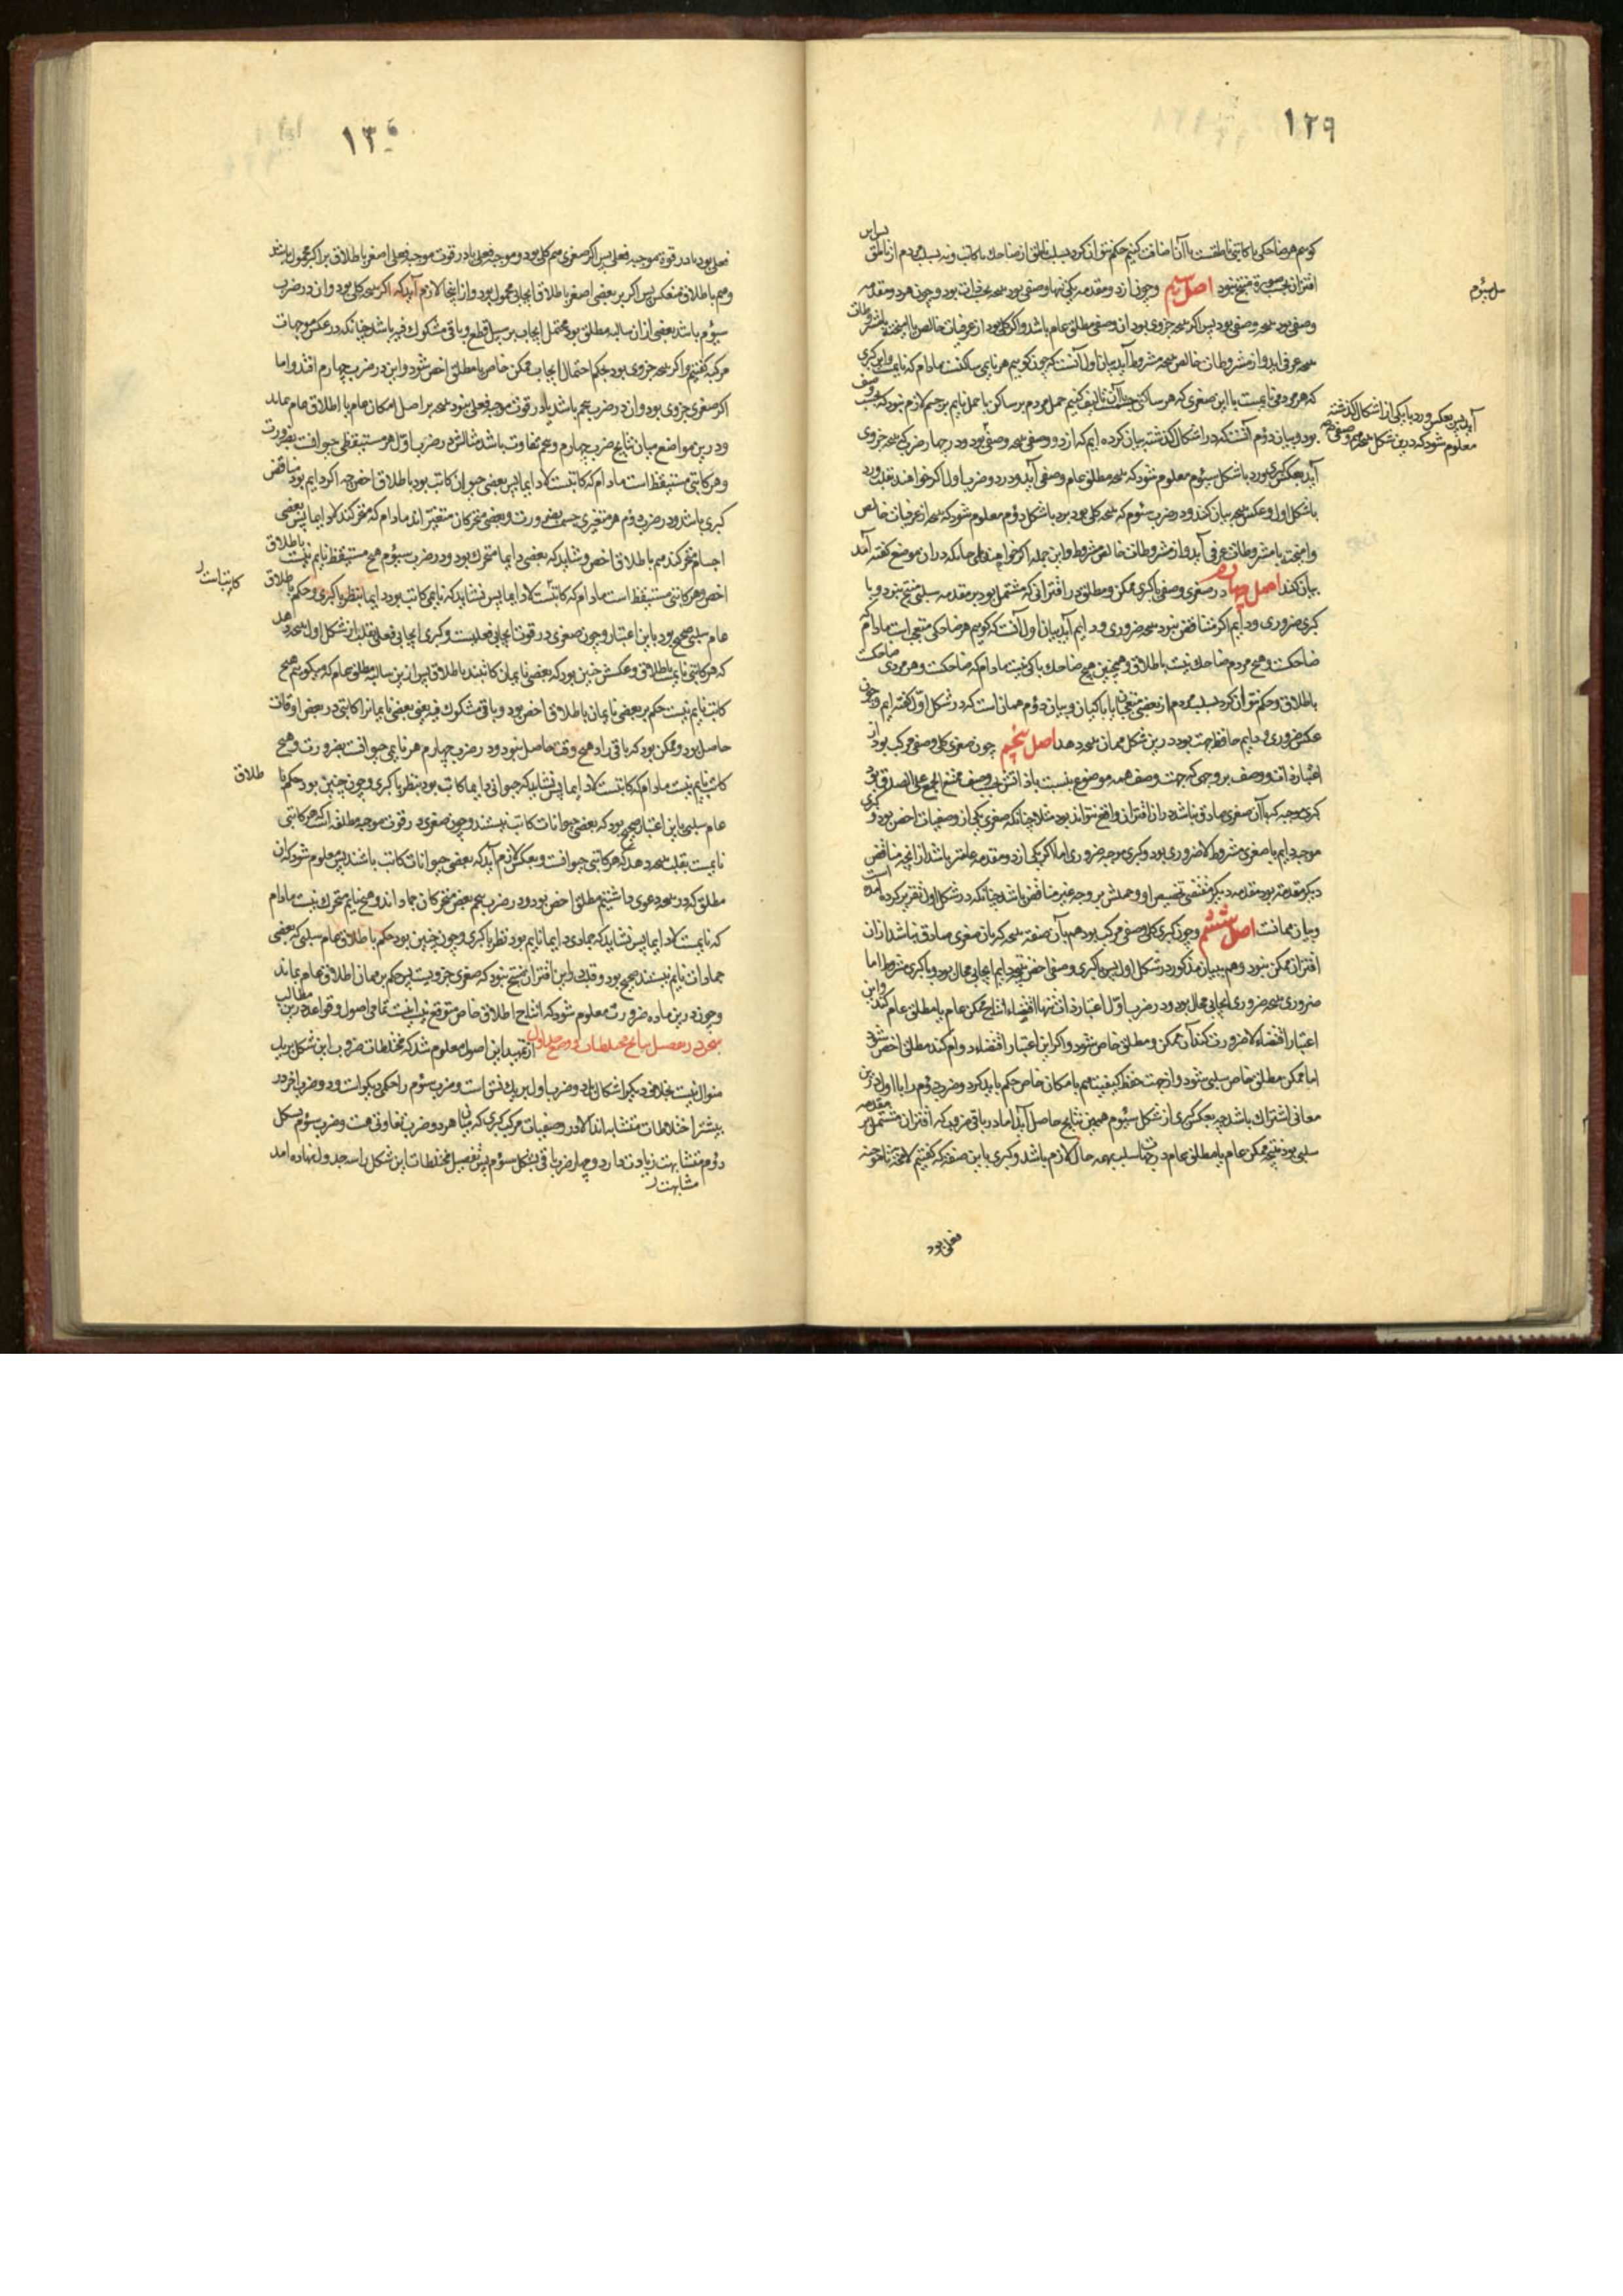 ۱۲۹
کوییم هر ضاحکی یا کاتبی ناطقست با آن اضافت کنیم حکم نتوان کرد بسلب ناطق از ضاحک یا کاتب و نه بسلب مردم از ناطق پس این
اقتران بحسب صورة منتج نبود اصل سیم و چون از دو مقدمه یکی تنها وصفی بود نتیجه بود و چون هر دو مقدمه
وصفی بود نتیجه وصفی بود پس اگر نتیجه جزوی بود آن وصفی مطلق عام باشد و اگر کلی بود از عرفیات خالص یا آمیخته بمشروطات
نتیجه عرفی آید و از مشروطات خالص نتیجه مشروطه آید بیان اول آنست که چون گوییم هر نایمی ساکنست مادام که نایمست و این کبری
که هر مردمی نایمست با این صغری که هر ساکنی تألیف کنیم حمل مردم بر ساکن یا حمل نایم بر جسم لازم نبود که بحسب وصف
بود و بیان دوم آنست که در اشکال گذشته بیان کرده ایم که از دو وصفی نتیجه وصفی بود و در چهار ضرب که نتیجه جزوی
آید بعکس کبری و رد با شکل سیوم معلوم شود که نتیجه مطلق عام وصفی آید و در دو ضرب اول اگر خواهند بقلب و رد
با شکل اول و عکس نتیجه بیان کنند و در ضرب سیوم که نتیجه کلی بود برد با شکل دوم معلوم شود که نتیجه از عرفیات خالص
و آمیخته با مشروطات عرفی آید و از مشروطات خالص مشروط و این جمله اگر خواهند چنانکه در آن موضع گفته آمد
بیان کنند اصل چهارم در صغری وصفی با کبری ممکن و مطلق در اقترانی که مشتمل بود بر مقدمه سلبی منتج نبود و با
کبری ضروری و دایم اگر متناقض نبود نتیجه ضروری و دایم آید بیان اول آنست که گوییم هر ضاحکی متعجب است مادام که
ضاحکست و هیچ مردم ضاحک نیست باطلاق و همچنین هیچ ضاحک باکی نیست مادام که ضاحکست و هر مردمی ضاحکست
باطلاق و حکم نتوان کرد بسلب مردم از بعضی متعجبان یا باکیان و بیان دوم همانست که در شکل اول گفته ایم و چون
عکس ضروری و دایم حافظ جهت بود درین شکل همان نتیجه دهد اصل پنجم چون صغری کلی وصفی مرکب بود از
اعتبار ذات و وصف بر وجهی که جهت وصف همه موضوع بنسبت با ذاتش بی وصف ممتنع الجمع علی الصدق بود
کبری موجبه که با آن صغری صادق نباشد در اقتران واقع نتواند بود مثلا چنانکه صغری یکی از وصفیات اخص بود و کبری
موجبه دایم یا صغری مشروطه لاضروری بود و کبری موجبه ضروری اما اگر یکی از دو مقدمه عامتر باشد از آنچه مناقض
دیگر مقدمه بود مقدمه دیگر مقتضی تخصیص او و حملش بر وجه غیر مناقض باشد چنانکه در شکل اول تقریر کرده آمده است
و بیان همانست اصل ششم و چون کبری کلی وصفی مرکب بود هم بآن صفت نتیجه که با آن صغری صادق نباشد از آن
اقتران ممکن نبود و هم ببیان مذکور در شکل اول پس با کبری وصفی اخص نتیجه دایم ایجابی محال بود و با کبری مشروط اما
ضروری نتیجه ضروری ایجابی محال بود و در ضرب اول اعتبار ذات تنها اقتضاء انتاج ممکن عام یا مطلق عام کند و این
اعتبار اقتضاء لاضرورت کند آن ممکن و مطلق خاص شود و اگر این اعتبار اقتضاء دوام کند مطلق اخص شود
اما ممکن مطلق خاص سلبی شود و از جهت حفظ کیفیت هم بامکان خاص حکم باید کرد و ضرب دوم را با اول درین
معانی اشتراک باشد چه بعکس کبری از شکل سیوم همین نتایج حاصل آید اما در باقی ضروب که اقتران مشتمل بر مقدمه
سلبی بود نتیجه ممکن عام یا مطلق عام در سلب بهمه حال لازم باشد و کبری باین صفت که گفتیم لامحاله
فعلی بود
سیوم
آید پس بعکس و رد با یکی از اشکال گذشته
معلوم شود که درین شکل نتیجه هم وصفی بود
۱۳۰
فعلی بود یا در قوة موجبه فعلی پس اگر صغری هم کلی بود و موجبه فعلی یا در قوت موجبه فعلی اصغر باطلاق بر اکبر محمول باشد
و هم باطلاق منعکس پس اکبر بر بعضی اصغر باطلاق ایجابی محمول بود و از اینجا لازم آید که اگر نتیجه کلی بود و آن در ضرب
سیوم باشد بعضی از آن سالبه مطلق بود محتمل ایجاب بر سبیل قطع و باقی مشکوک فیه باشد چنانکه در عکس موجهات
مرکبه گفتیم و اگر نتیجه جزوی بود بحکم احتمال ایجاب ممکن خاص یا مطلق اخص شود و این در ضرب چهارم افتد و اما
اگر صغری جزوی بود و آن در ضرب پنجم باشد یا در قوت موجبه فعلی نبود نتیجه بر اصل امکان عام یا اطلاق عام بماند
و درین مواضع میان نتایج ضرب چهارم و پنجم تفاوت باشد مثالش در ضرب اول هر مستیقظی حیوانست بضرورت
و هر کاتبی مستیقظ است مادام که کاتبست لادایما پس بعضی حیوان کاتب بود باطلاق اخص چه اگر دایم بود مناقض
کبری باشد و در ضرب دوم هر متغیری جسمست بضرورت و بعضی متحرکان متغیر اند مادام که متحرکند لادایما پس بعضی
اجسام متحرکند هم باطلاق اخص و نشاید که بعضی دایما متحرک بود و در ضرب سیوم هیچ مستیقظ نایم نیست باطلاق
اخص و هر کاتبی مستیقظ است مادام که کاتبست لادایما پس نشاید که نایمی کاتب بود دایما بنظر با کبری و حکم باطلاق
عام سلبی صحیح بود باین اعتبار و چون صغری در قوت ایجابی فعلیست و کبری ایجابی فعلی بقلب از شکل اول نتیجه دهد
که هر کاتبی نایمست باطلاق و عکسش چنین بود که بعضی نایمان کاتبند باطلاق پس ازین سالبه مطلق عام که میگوییم هیچ
کاتب نایم نیست حکم بر بعضی نایمان باطلاق اخص بود و باقی مشکوک فیه یعنی بعضی نایمانرا کاتبی در بعضی اوقات
حاصل بود و ممکن بود که باقی را در هیچ وقت حاصل نبود و در ضرب چهارم هر نایمی حیوانست بضرورت و هیچ
کاتب نایم نیست مادام که کاتبست لادایما پس نشاید که حیوانی دایما کاتب بود بنظر با کبری و چون چنین بود حکم با
عام سلبی باین اعتبار صحیح بود که بعضی حیوانات کاتب نیستند و چون صغری در قوت موجبه مطلقه است که هر کاتبی
نایمست بقلب نتیجه دهد که هر کاتبی حیوانست و بعکس لازم آید که بعضی حیوانات کاتب باشند پس معلوم شود که آن
مطلق که در نتیجه دعوی داشتیم مطلق اخص بود و در ضرب پنجم بعضی متحرکان جماداند و هیچ نایم متحرک نیست مادام
که نایمست لادایما پس نشاید که جمادی دایما نایم بود نظر با کبری و چون چنین بود حکم باطلاق عام سلبی که بعضی
جمادات نایم نیستند صحیح بود و قلب این اقتران منتج نبود که صغری جزویست پس حکم بر همان اطلاق عام بماند
و چون درین ماده ضرورت معلوم شود که انتاج اطلاق خاص متوقع نیست اینست تمامی اصول و قواعد درین مطالب
سخن در تفصیل نتایج مختلطات و وضع جداول از تقریر این اصول معلوم شد که مختلطات ضروب این شکل بر یک
منوال نیست بخلاف دیگر اشکال بل دو ضرب اول بر یک نسق است و ضرب سیوم را حکمی دیگر است و دو ضرب آخر در
بیشتر اختلاطات متشابه اند الا در وصفیات مرکب کبری که میان هر دو ضرب تفاوتی هست و ضرب سیوم بشکل
دوم متشابهت زیادت دارد و چهار ضرب باقی بشکل سیوم پس تفصیل مختلطات این شکل را سه جدول نهاده آمد
مشابهت
کاتبست
طلاق